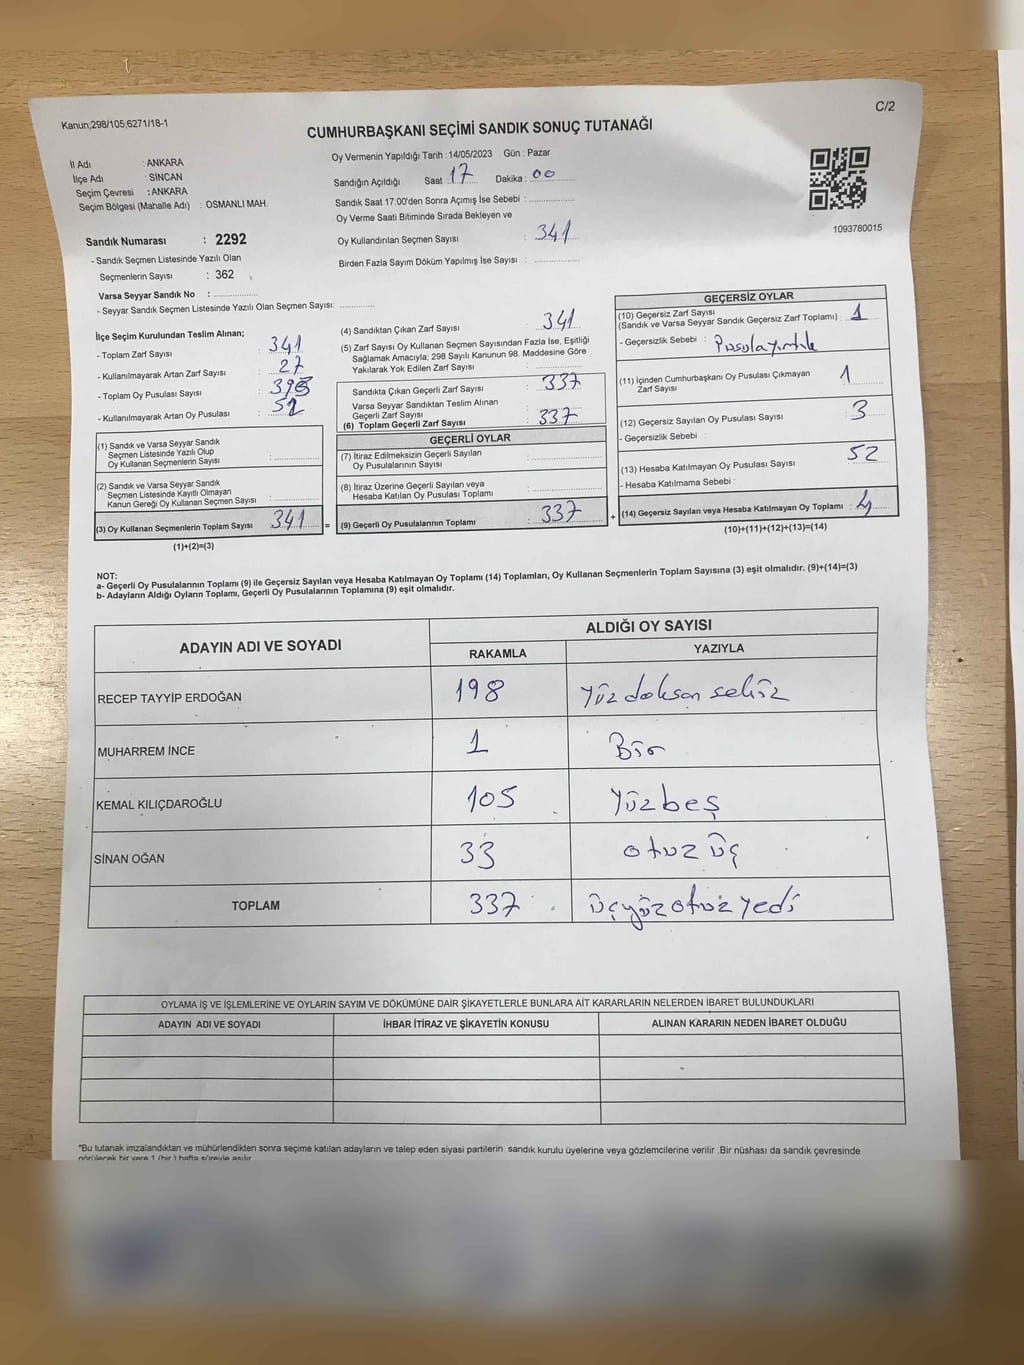 C/2
Kanun;298/105;6271/18-1
CUMHURBAŞKANI SEÇİMİ SANDIK SONUÇ TUTANAĞI
İl Adı : ANKARA
İlçe Adı : SİNCAN
Seçim Çevresi : ANKARA
Seçim Bölgesi (Mahalle Adı) : OSMANLI MAH.
Oy Vermenin Yapıldığı Tarih : 14/05/2023 Gün : Pazar
Sandığın Açıldığı Saat 17 Dakika : 00
Sandık Saat 17:00'den Sonra Açımış İse Sebebi :
Oy Verme Saati Bitiminde Sırada Bekleyen ve
Oy Kullandırılan Seçmen Sayısı : 341
Birden Fazla Sayım Döküm Yapılmış İse Sayısı :
1093780015
Sandık Numarası : 2292
- Sandık Seçmen Listesinde Yazılı Olan
Seçmenlerin Sayısı : 362
Varsa Seyyar Sandık No :
- Seyyar Sandık Seçmen Listesinde Yazılı Olan Seçmen Sayısı:
İlçe Seçim Kurulundan Teslim Alınan;
- Toplam Zarf Sayısı : 341
- Kullanılmayarak Artan Zarf Sayısı : 27
- Toplam Oy Pusulası Sayısı :
- Kullanılmayarak Artan Oy Pusulası :
(1) Sandık ve Varsa Seyyar Sandık
Seçmen Listesinde Yazılı Olup
Oy Kullanan Seçmenlerin Sayısı :
(2) Sandık ve Varsa Seyyar Sandık
Seçmen Listesinde Kayıtlı Olmayan
Kanun Gereği Oy Kullanan Seçmen Sayısı :
(3) Oy Kullanan Seçmenlerin Toplam Sayısı : 341 =
(1)+(2)=(3)
(4) Sandıktan Çıkan Zarf Sayısı : 341
(5) Zarf Sayısı Oy Kullanan Seçmen Sayısından Fazla İse, Eşitliği
Sağlamak Amacıyla; 298 Sayılı Kanunun 98. Maddesine Göre
Yakılarak Yok Edilen Zarf Sayısı :
Sandıkta Çıkan Geçerli Zarf Sayısı : 337
Varsa Seyyar Sandıktan Teslim Alınan
Geçerli Zarf Sayısı :
(6) Toplam Geçerli Zarf Sayısı : 337
GEÇERLİ OYLAR
(7) İtiraz Edilmeksizin Geçerli Sayılan
Oy Pusulalarının Sayısı :
(8) İtiraz Üzerine Geçerli Sayılan veya
Hesaba Katılan Oy Pusulası Toplamı :
(9) Geçerli Oy Pusulalarının Toplamı : 337 +
GEÇERSİZ OYLAR
(10) Geçersiz Zarf Sayısı
(Sandık ve Varsa Seyyar Sandık Geçersiz Zarf Toplamı) : 1
- Geçersizlik Sebebi :
(11) İçinden Cumhurbaşkanı Oy Pusulası Çıkmayan
Zarf Sayısı 1
(12) Geçersiz Sayılan Oy Pusulası Sayısı : 3
- Geçersizlik Sebebi :
(13) Hesaba Katılmayan Oy Pusulası Sayısı : 52
- Hesaba Katılmama Sebebi :
(14) Geçersiz Sayılan veya Hesaba Katılmayan Oy Toplamı : 4
(10)+(11)+(12)+(13)=(14)
NOT:
a- Geçerli Oy Pusulalarının Toplamı (9) ile Geçersiz Sayılan veya Hesaba Katılmayan Oy Toplamı (14) Toplamları, Oy Kullanan Seçmenlerin Toplam Sayısına (3) eşit olmalıdır. (9)+(14)=(3)
b- Adayların Aldığı Oyların Toplamı, Geçerli Oy Pusulalarının Toplamına (9) eşit olmalıdır.
ADAYIN ADI VE SOYADI
ALDIĞI OY SAYISI
RAKAMLA YAZIYLA
RECEP TAYYİP ERDOĞAN 198 Yüz doksan sekiz
MUHARREM İNCE 1 Bir
KEMAL KILIÇDAROĞLU 105 Yüzbeş
SİNAN OĞAN 33 otuz üç
TOPLAM 337 üçyüzotuz yedi
OYLAMA İŞ VE İŞLEMLERİNE VE OYLARIN SAYIM VE DÖKÜMÜNE DAİR ŞİKAYETLERLE BUNLARA AİT KARARLARIN NELERDEN İBARET BULUNDUKLARI
ADAYIN ADI VE SOYADI İHBAR İTİRAZ VE ŞİKAYETİN KONUSU ALINAN KARARIN NEDEN İBARET OLDUĞU
*Bu tutanak imzalandıktan ve mühürlendikten sonra seçime katılan adayların ve talep eden siyasi partilerin sandık kurulu üyelerine veya gözlemcilerine verilir .Bir nüshası da sandık çevresinde
görülecek bir yere 1 (bir ) hafta süreyle asılır.